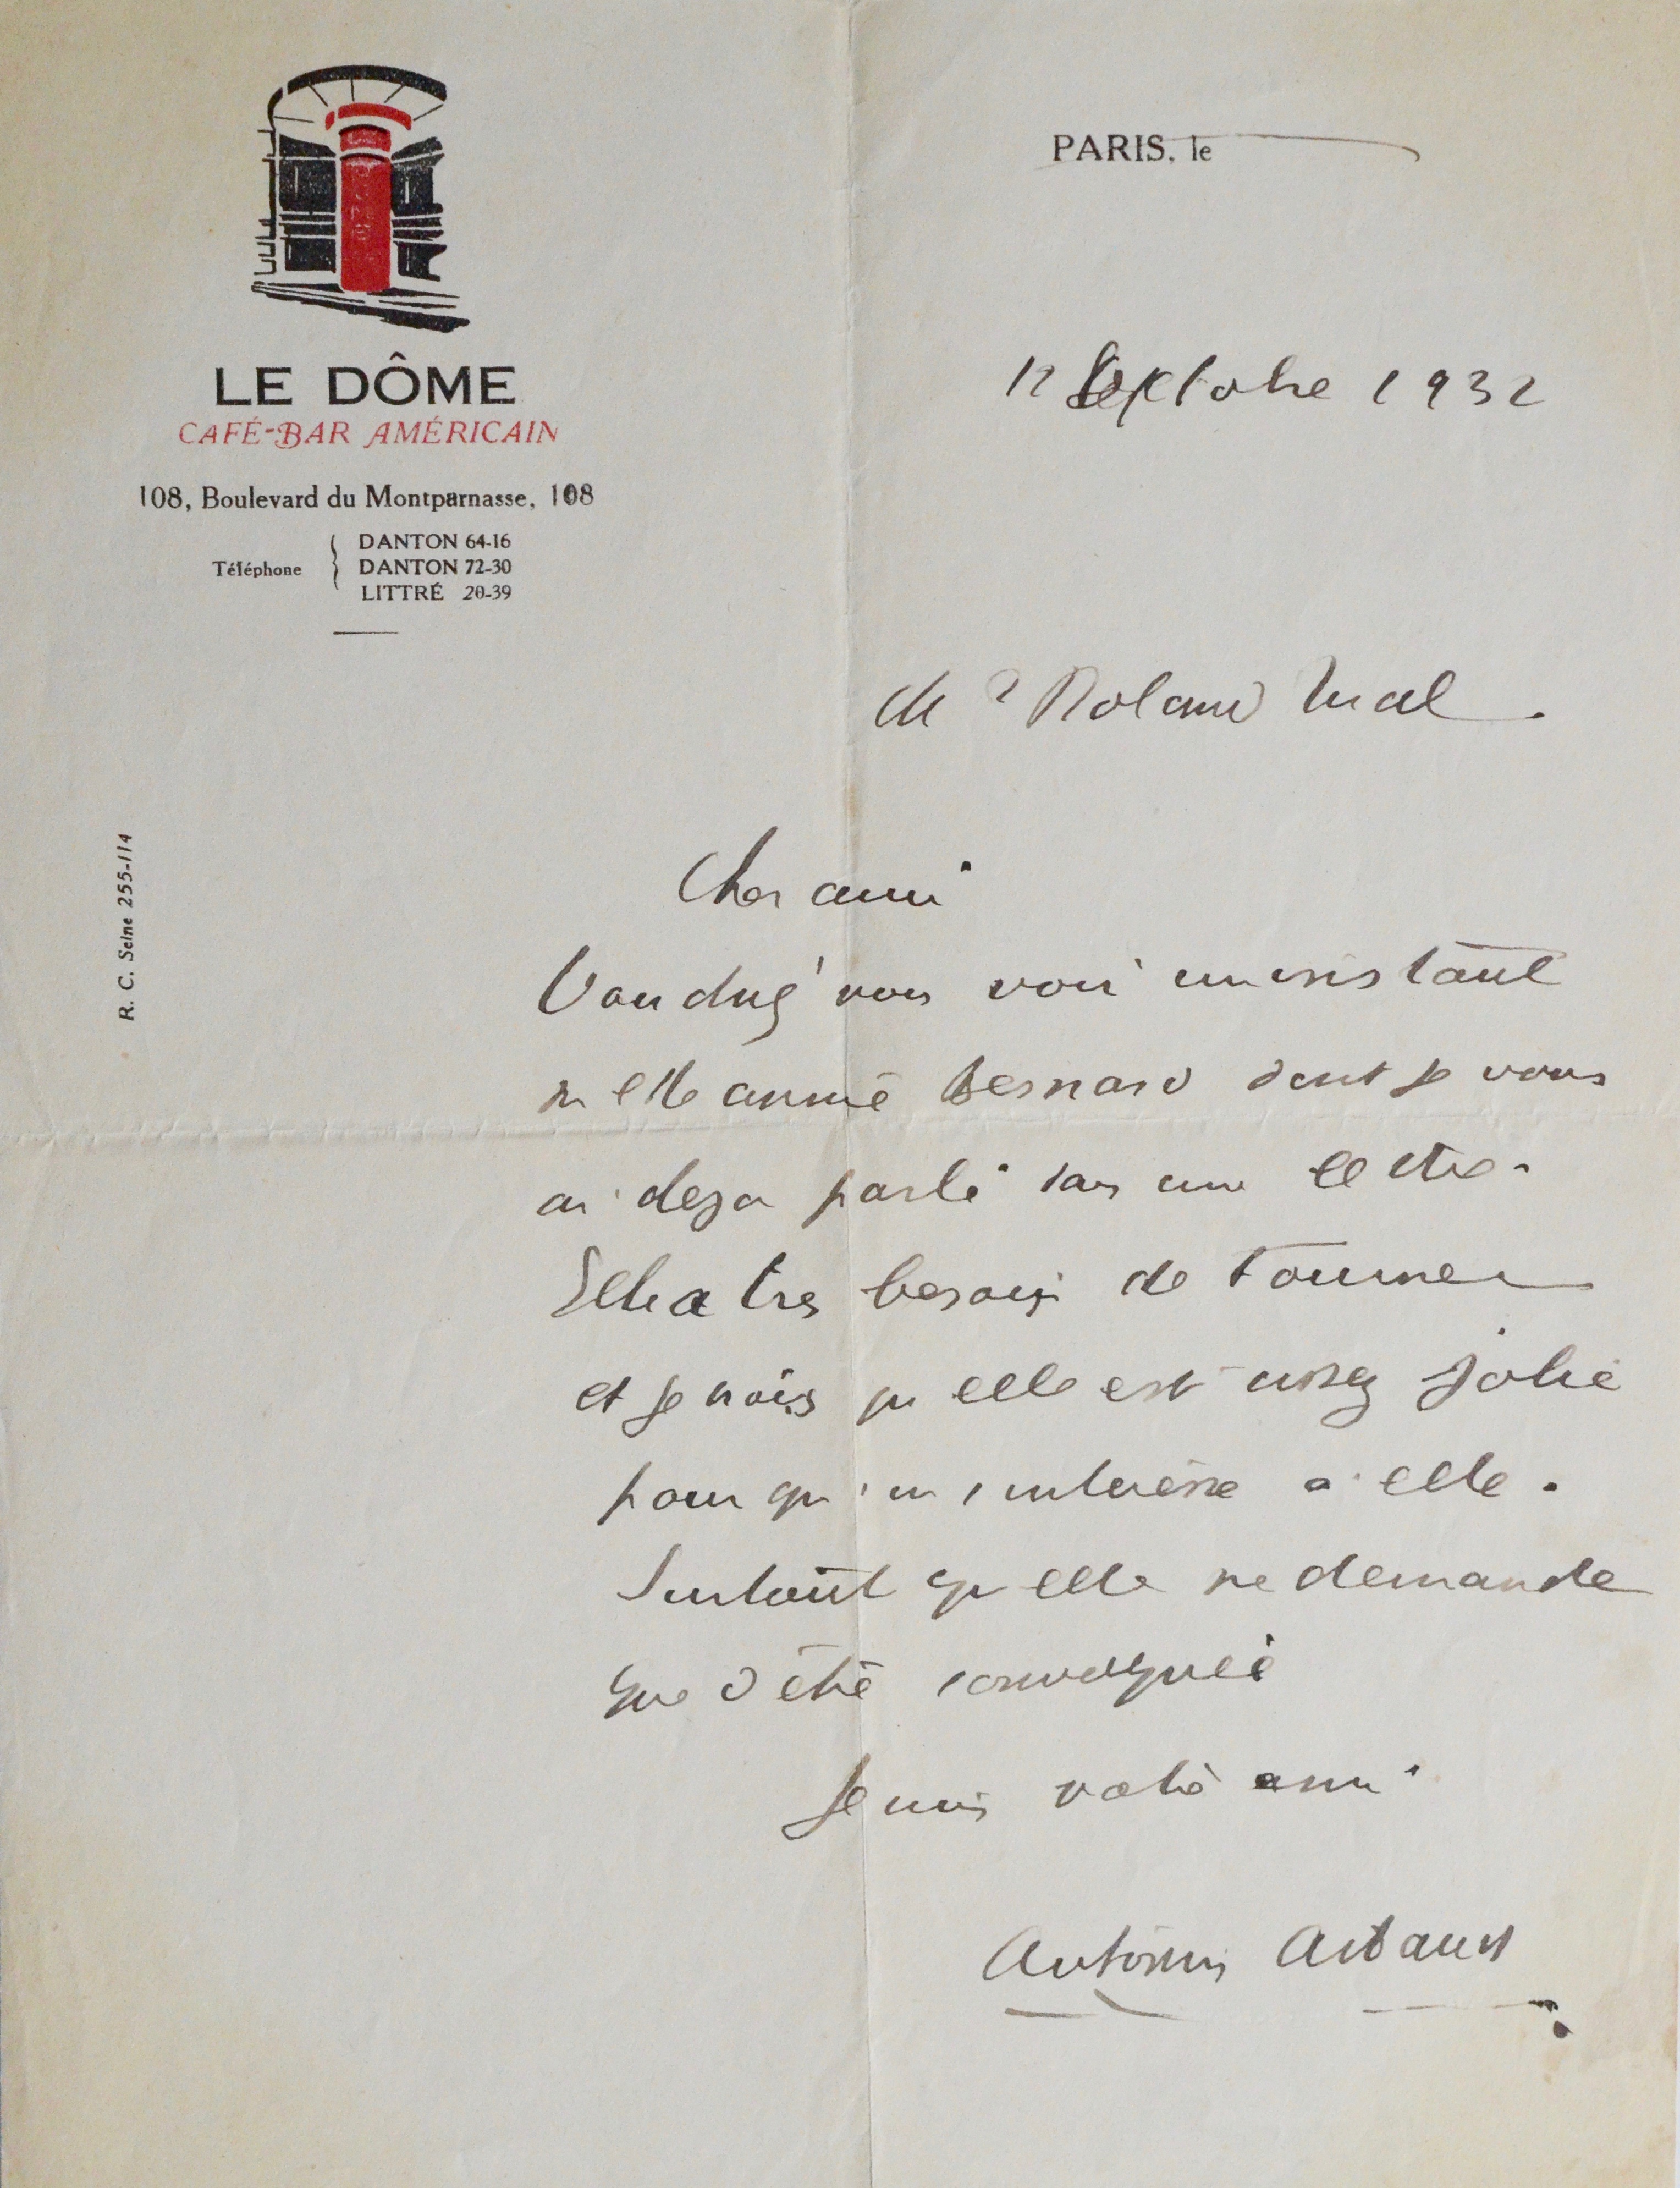 LE DÔME
CAFÉ-BAR AMÉRICAIN
108, Boulevard du Montparnasse, 108
Téléphone
DANTON 64-16
DANTON 72-30
LITTRÉ 20-39
R. C. Seine 255-114
PARIS, le
12 1932
Mr Roland
Cher ami
Voudrez vous voir un instant
Melle Annie Besnard dont je vous
ai deja parlé dans une lettre.
Elle a tres besoin de tourner
et je crois qu elle est assez jolie
pour qu'on s intéresse à elle.
Surtout qu elle ne demande
que d être convoquée
Je suis votre ami
Antonin Artaud